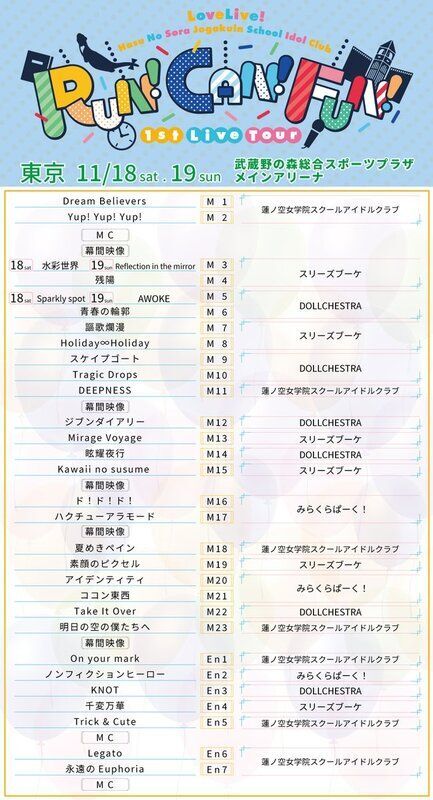 LoveLive!
Hasu No Sora Jogakuin School Idol Club
RUN! CAN! FUN!
1st Live Tour
東京 11/18 sat . 19 sun 武蔵野の森総合スポーツプラザ
メインアリーナ
Dream Believers M 1 蓮ノ空女学院スクールアイドルクラブ
Yup! Yup! Yup! M 2
MC
幕間映像
18 sat 水彩世界 19 sun Reflection in the mirror M 3 スリーズブーケ
残陽 M 4
18 sat Sparkly spot 19 sun AWOKE M 5 DOLLCHESTRA
青春の輪郭 M 6
謳歌爛漫 M 7 スリーズブーケ
Holiday∞Holiday M 8
スケイプゴート M 9 DOLLCHESTRA
Tragic Drops M10
DEEPNESS M11 蓮ノ空女学院スクールアイドルクラブ
幕間映像
ジブンダイアリー M12 DOLLCHESTRA
Mirage Voyage M13 スリーズブーケ
眩耀夜行 M14 DOLLCHESTRA
Kawaii no susume M15 スリーズブーケ
幕間映像
ド！ド！ド！ M16 みらくらぱーく！
ハクチューアラモード M17
幕間映像
夏めきペイン M18 蓮ノ空女学院スクールアイドルクラブ
素顔のピクセル M19 スリーズブーケ
アイデンティティ M20 みらくらぱーく！
ココン東西 M21
Take It Over M22 DOLLCHESTRA
明日の空の僕たちへ M23 蓮ノ空女学院スクールアイドルクラブ
幕間映像
On your mark En1 蓮ノ空女学院スクールアイドルクラブ
ノンフィクションヒーロー En2 みらくらぱーく！
KNOT En3 DOLLCHESTRA
千変万華 En4 スリーズブーケ
Trick & Cute En5 蓮ノ空女学院スクールアイドルクラブ
MC
Legato En6 蓮ノ空女学院スクールアイドルクラブ
永遠のEuphoria En7
MC